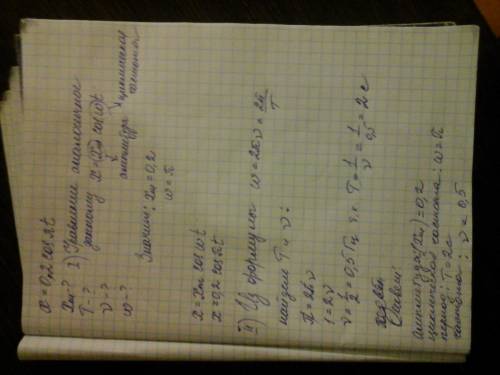 x = 0,2 cos πt
xm - ?
T - ?
ν - ?
ω - ?
I) Уравнение аналогичное
данному x = xm cos ωt
амплитуда циклическая частота
Значит: xm = 0,2
ω = π
x = xm cos ωt
x = 0,2 cos πt
II) Из формулы ω = 2πν = 2π/T
найдем T и ν:
π = 2πν
1 = 2ν
ν = 1/2 = 0,5 Гц т.к. T = 1/ν = 1/0,5 = 2 с
Ответ:
амплитуда (xm) = 0,2
циклическая частота: ω = π
период: T = 2с
частота: ν = 0,5